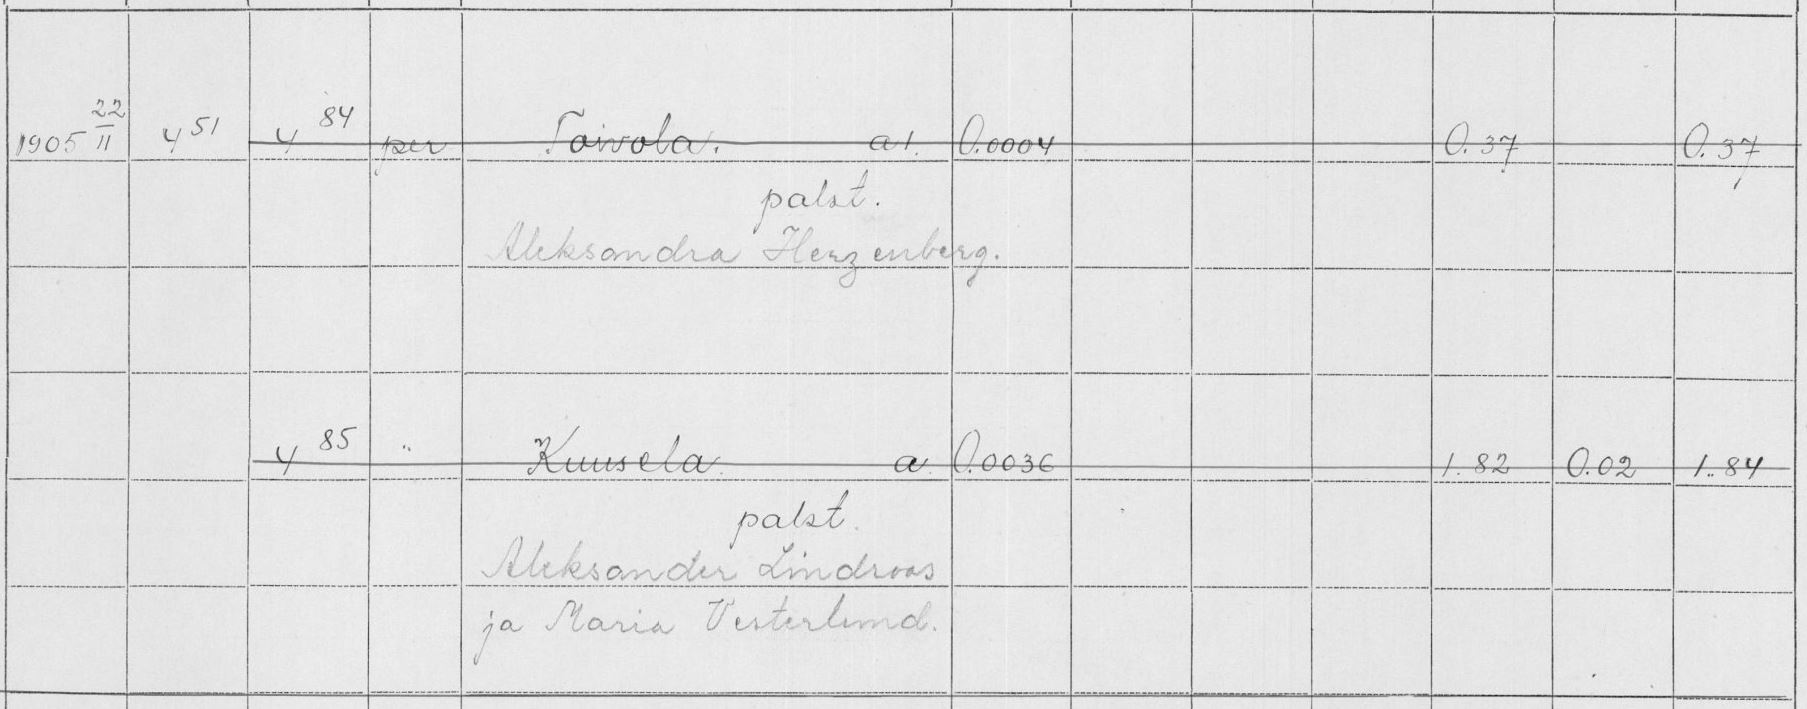 1905 22/II 4 51 4 84 per Toivola. a1. 0.0004 0.37 0.37
palst.
Aleksandra Herzenberg.
4 85 " Kuusela a. 0.0036 1.82 0.02 1.84
palst.
Aleksander Lindroos
ja Maria Vesterlund.